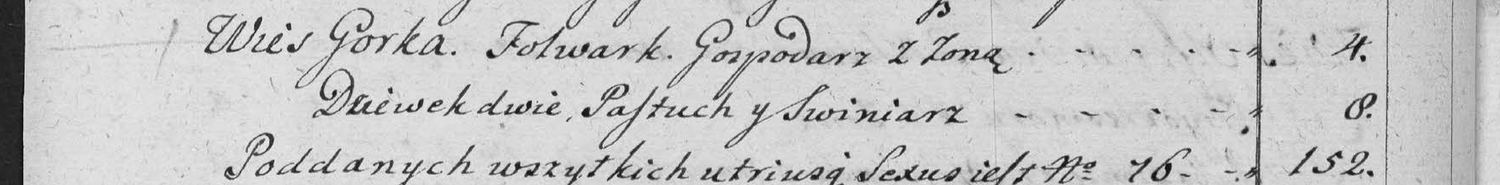 Wies Gorka. Folwark. Gospodarz z Zoną . - - . . - „. 4.
Dziewek dwie, Pastuch y Swiniarz - - . - „. 8.
Poddanych wszytkich utriusq́ Sexus iest No 76 - -„ 152.